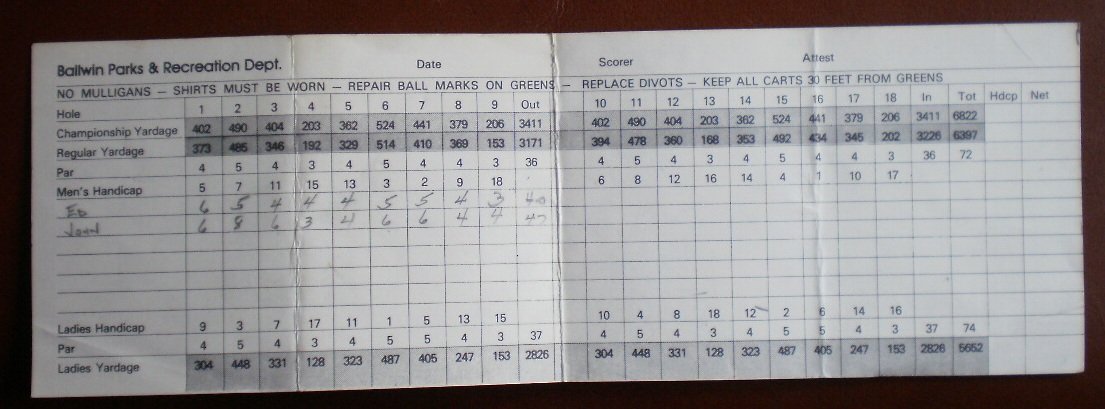 Ballwin Parks & Recreation Dept. Date Scorer Attest
NO MULLIGANS — SHIRTS MUST BE WORN — REPAIR BALL MARKS ON GREENS — REPLACE DIVOTS — KEEP ALL CARTS 30 FEET FROM GREENS
Hole 1 2 3 4 5 6 7 8 9 Out 10 11 12 13 14 15 16 17 18 In Tot Hdcp Net
Championship Yardage 402 490 404 203 362 524 441 379 206 3411 402 490 404 203 362 524 441 379 206 3411 6822
Regular Yardage 373 485 346 192 329 514 410 369 153 3171 394 478 360 168 353 492 434 345 202 3226 6397
Par 4 5 4 3 4 5 4 4 3 36 4 5 4 3 4 5 4 4 3 36 72
Men's Handicap 5 7 11 15 13 3 2 9 18 6 8 12 16 14 4 1 10 17
ED 6 5 4 4 4 5 5 4 3 40
John 6 8 6 3 4 6 6 4 4 47
Ladies Handicap 9 3 7 17 11 1 5 13 15 10 4 8 18 12 2 6 14 16
Par 4 5 4 3 4 5 5 4 3 37 4 5 4 3 4 5 5 4 3 37 74
Ladies Yardage 304 448 331 128 323 487 405 247 153 2826 304 448 331 128 323 487 405 247 153 2826 5652